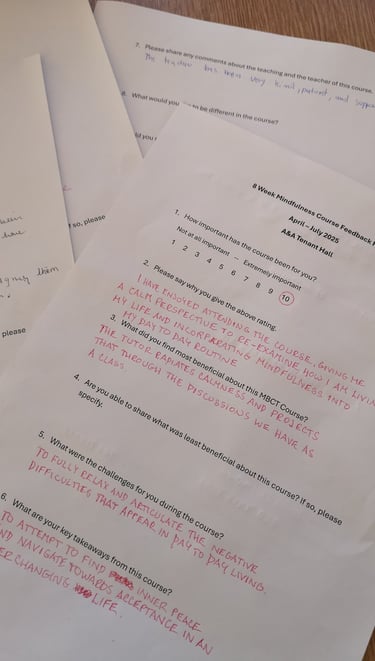 7. Please share any comments about the teaching and the teacher of this course.
The teacher has been very kind, patient, and
What would you to be different in the course?
ld you
f so, please
them
please
8 Week Mindfulness Course Feedback
April – July 2025
A&A Tenant Hall
1. How important has the course been for you?
Not at all important – Extremely important
1 2 3 4 5 6 7 8 9 10
2. Please say why you give the above rating.
I HAVE ENJOYED ATTENDING THE COURSE, GIVING ME
A CALM PERSPECTIVE TO RE-EXAMINE HOW I AM LIVING
MY LIFE AND INCORPARATING MINDFULNESS INTO
MY DAY TO DAY ROUTINE.
3. What did you find most beneficial about this MBCT Course?
THE TUTOR RADIATES CALMNESS AND PROJECTS
THAT THROUGH THE DISCUSSIONS WE HAVE AS
A CLASS.
4. Are you able to share what was least beneficial about this course? If so, please
specify.
5. What were the challenges for you during the course?
TO FULLY RELAX AND ARTICULATE THE NEGATIVE
DIFFICULTIES THAT APPEAR IN DAY TO DAY LIVING.
6. What are your key takeaways from this course?
TO ATTEMPT TO FIND INNER PEACE
ND NAVIGATE TOWARDS ACCEPTANCE IN AN
ER CHANGING LIFE.